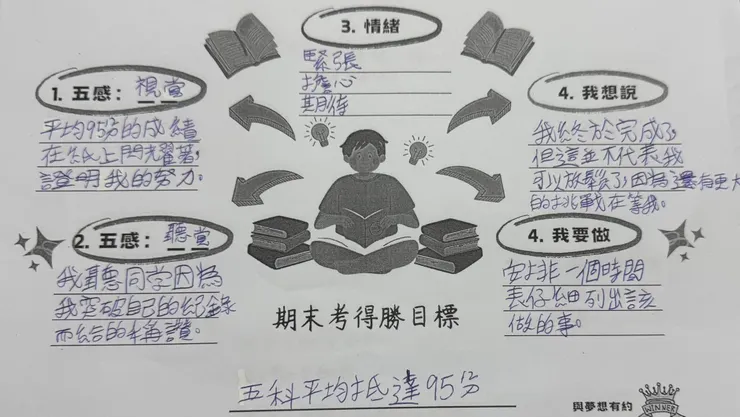 3. 情緒
緊張
擔心
期待
1. 五感：視覺
平均95分的成績
在紙上閃耀著，
證明我的努力。
4. 我想說
我終於完成了，
但這並不代表我
可以放鬆了，因為還有更大
的挑戰在等我。
2. 五感：聽覺
我聽同學因為
我突破自己的紀錄
而給的稱讚。
4. 我要做
安排一個時間
表仔細列出該
做的事。
期末考得勝目標
五科平均抵達95分
與夢想有約
WINNER